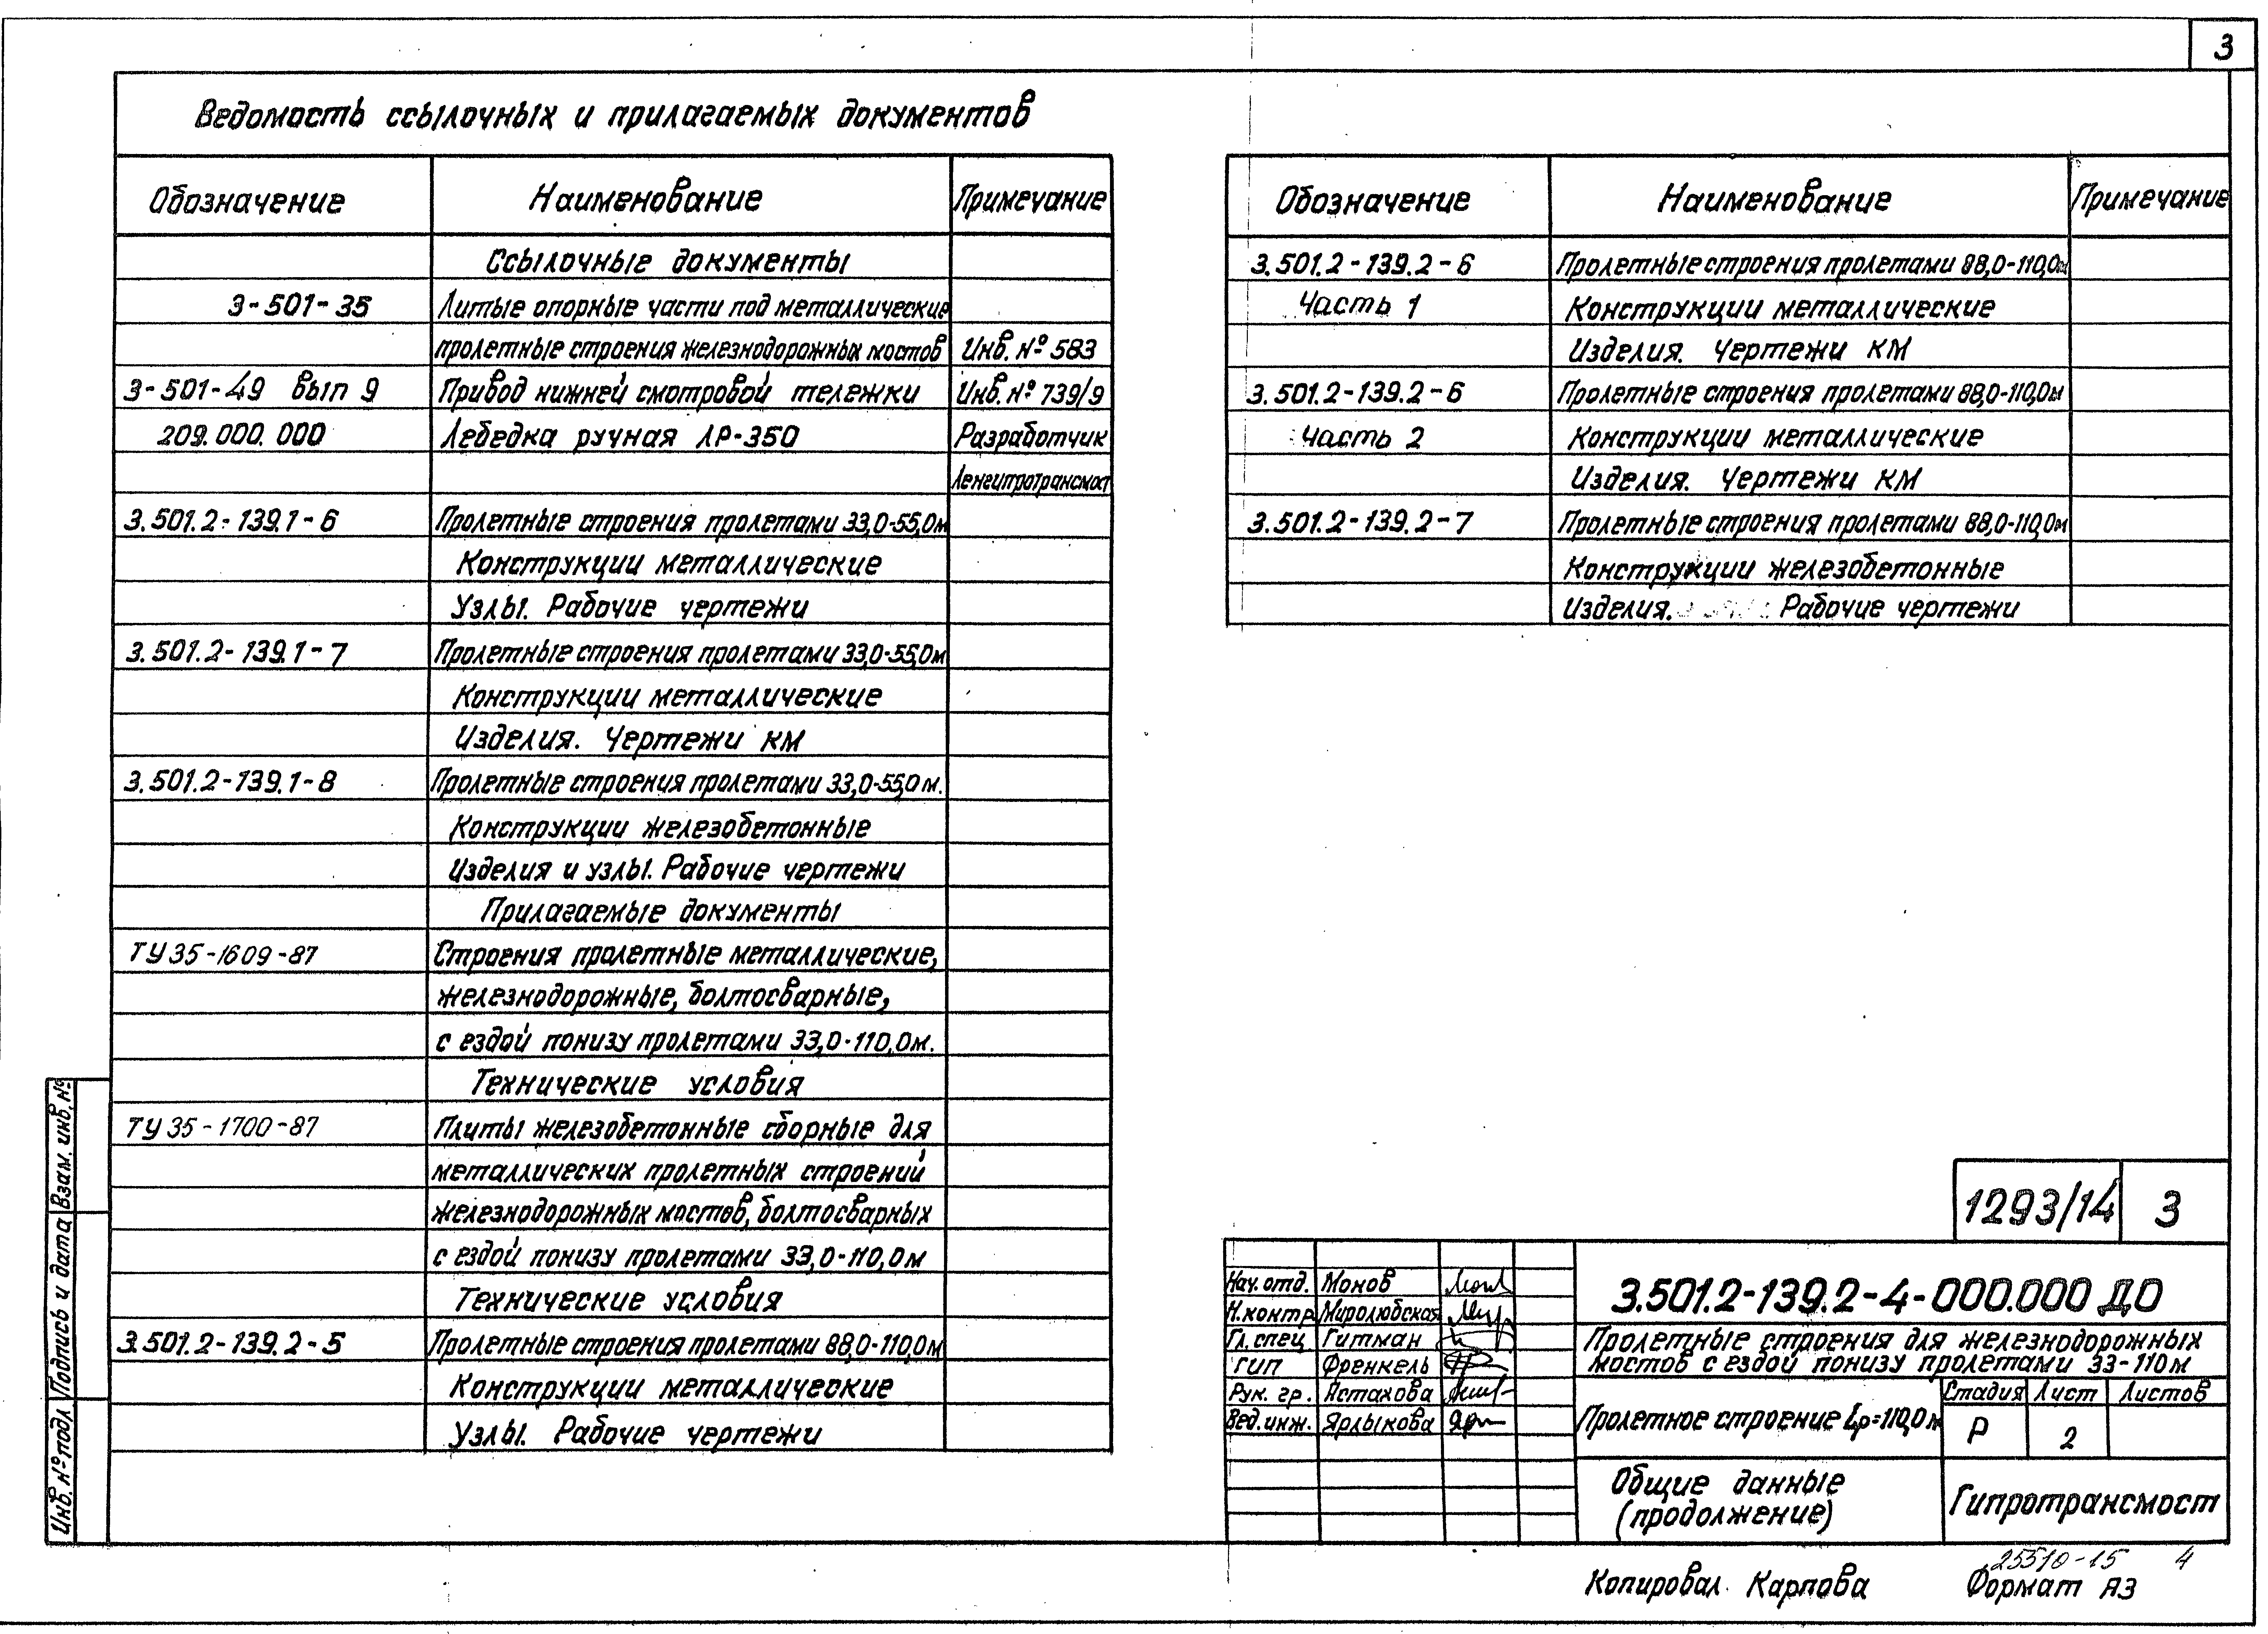 3
Ведомость ссылочных и прилагаемых документов
Обозначение Наименование Примечание
Ссылочные документы
3-501-35 Литые опорные части под металлические
пролетные строения железнодорожных мостов Инв. № 583
3-501-49 вып 9 Привод нижней смотровой тележки Инв. № 739/9
209.000.000 Лебедка ручная ЛР-350 Разработчик
Ленгипротрансмост
3.501.2-139.1-6 Пролетные строения пролетами 33,0-55,0м
Конструкции металлические
Узлы. Рабочие чертежи
3.501.2-139.1-7 Пролетные строения пролетами 33,0-55,0м
Конструкции металлические
Изделия. Чертежи КМ
3.501.2-139.1-8 Пролетные строения пролетами 33,0-55,0м.
Конструкции железобетонные
Изделия и узлы. Рабочие чертежи
Прилагаемые документы
ТУ 35-1609-87 Строения пролетные металлические,
железнодорожные, болтосварные,
с ездой понизу пролетами 33,0-110,0м.
Технические условия
ТУ 35-1700-87 Плиты железобетонные сборные для
металлических пролетных строений
железнодорожных мостов, болтосварных
с ездой понизу пролетами 33,0-110,0м
Технические условия
3.501.2-139.2-5 Пролетные строения пролетами 88,0-110,0м
Конструкции металлические
Узлы. Рабочие чертежи
Обозначение Наименование Примечание
3.501.2-139.2-6 Пролетные строения пролетами 88,0-110,0м
Часть 1 Конструкции металлические
Изделия. Чертежи КМ
3.501.2-139.2-6 Пролетные строения пролетами 88,0-110,0м
Часть 2 Конструкции металлические
Изделия. Чертежи КМ
3.501.2-139.2-7 Пролетные строения пролетами 88,0-110,0м
Конструкции железобетонные
Изделия. Рабочие чертежи
1293/14 3
Нач. отд. Монов
Н.контр Миролюбская
Гл. спец Гитман
ГИП Френкель
Рук. гр. Астахова
Вед. инж. Ярлыкова
3.501.2-139.2-4-000.000 ДО
Пролетные строения для железнодорожных
мостов с ездой понизу пролетами 33-110м
Пролетное строение Lр=110,0м
Стадия Лист Листов
Р 2
Общие данные
(продолжение)
Гипротрансмост
25510-15 4
Копировал Карпова Формат А3
Инв. № подл. Подпись и дата Взам. инв. №